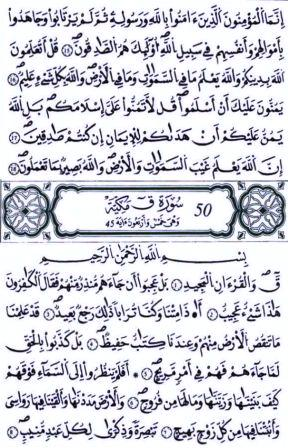 إِنَّمَا الْمُؤْمِنُونَ الَّذِينَ ءَامَنُوا بِاللَّهِ وَرَسُولِهِ ثُمَّ لَمْ يَرْتَابُوا وَجَاهَدُوا
بِأَمْوَالِهِمْ وَأَنفُسِهِمْ فِي سَبِيلِ اللَّهِ أُولَٰئِكَ هُمُ الصَّادِقُونَ ١٥ قُلْ أَتُعَلِّمُونَ
اللَّهَ بِدِينِكُمْ وَاللَّهُ يَعْلَمُ مَا فِي السَّمَٰوَاتِ وَمَا فِي الْأَرْضِ وَاللَّهُ بِكُلِّ شَيْءٍ عَلِيمٌ ١٦
يَمُنُّونَ عَلَيْكَ أَنْ أَسْلَمُوا قُل لَّا تَمُنُّوا عَلَيَّ إِسْلَٰمَكُم بَلِ اللَّهُ
يَمُنُّ عَلَيْكُمْ أَنْ هَدَىٰكُمْ لِلْإِيمَانِ إِن كُنتُمْ صَادِقِينَ ١٧
إِنَّ اللَّهَ يَعْلَمُ غَيْبَ السَّمَٰوَاتِ وَالْأَرْضِ وَاللَّهُ بَصِيرٌ بِمَا تَعْمَلُونَ ١٨
50 سُورَةُ ق مَكِّيَّة
وَهِيَ خَمْسٌ وَأَرْبَعُونَ ءَايَةً
بِسْمِ اللَّهِ الرَّحْمَٰنِ الرَّحِيمِ
قٓ وَالْقُرْءَانِ الْمَجِيدِ ١ بَلْ عَجِبُوا أَن جَاءَهُم مُّنذِرٌ مِّنْهُمْ فَقَالَ الْكَٰفِرُونَ
هَٰذَا شَيْءٌ عَجِيبٌ ٢ أَءِذَا مِتْنَا وَكُنَّا تُرَابًا ذَٰلِكَ رَجْعٌ بَعِيدٌ ٣ قَدْ عَلِمْنَا
مَا تَنقُصُ الْأَرْضُ مِنْهُمْ وَعِندَنَا كِتَٰبٌ حَفِيظٌ ٤ بَلْ كَذَّبُوا بِالْحَقِّ
لَمَّا جَاءَهُمْ فَهُمْ فِي أَمْرٍ مَّرِيجٍ ٥ أَفَلَمْ يَنظُرُوا إِلَى السَّمَاءِ فَوْقَهُمْ
كَيْفَ بَنَيْنَٰهَا وَزَيَّنَّٰهَا وَمَا لَهَا مِن فُرُوجٍ ٦ وَالْأَرْضَ مَدَدْنَٰهَا وَأَلْقَيْنَا فِيهَا رَوَاسِيَ
وَأَنبَتْنَا فِيهَا مِن كُلِّ زَوْجٍ بَهِيجٍ ٧ تَبْصِرَةً وَذِكْرَىٰ لِكُلِّ عَبْدٍ مُّنِيبٍ ٨